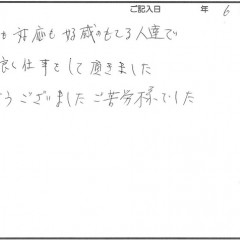 ご記入日 年 6
も 対応も 好感のもてる人達で
良く仕事をして頂きました
うございました ご苦労様でした